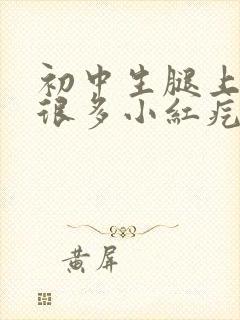 初中生腿上
很多小红疙
黄屏